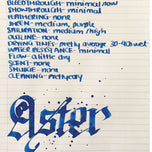 BLEEDTHROUGH- minimal now
SHOWTHROUGH- minimal
FEATHERING- none
SHEEN- medium, purple
SATURATION- medium/high
OUTLINE- none
DRYING TIMES- pretty average 30-40 wet
WATER RESISTANCE- minimal
FLOW- a little dry
SCENT- none
SMUDGE- none
CLEANING- pretty easy
Aster